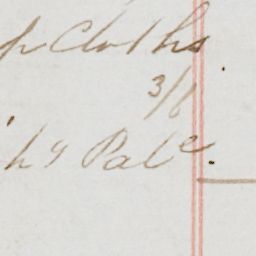 p Cloths
3/6
h y Pale.